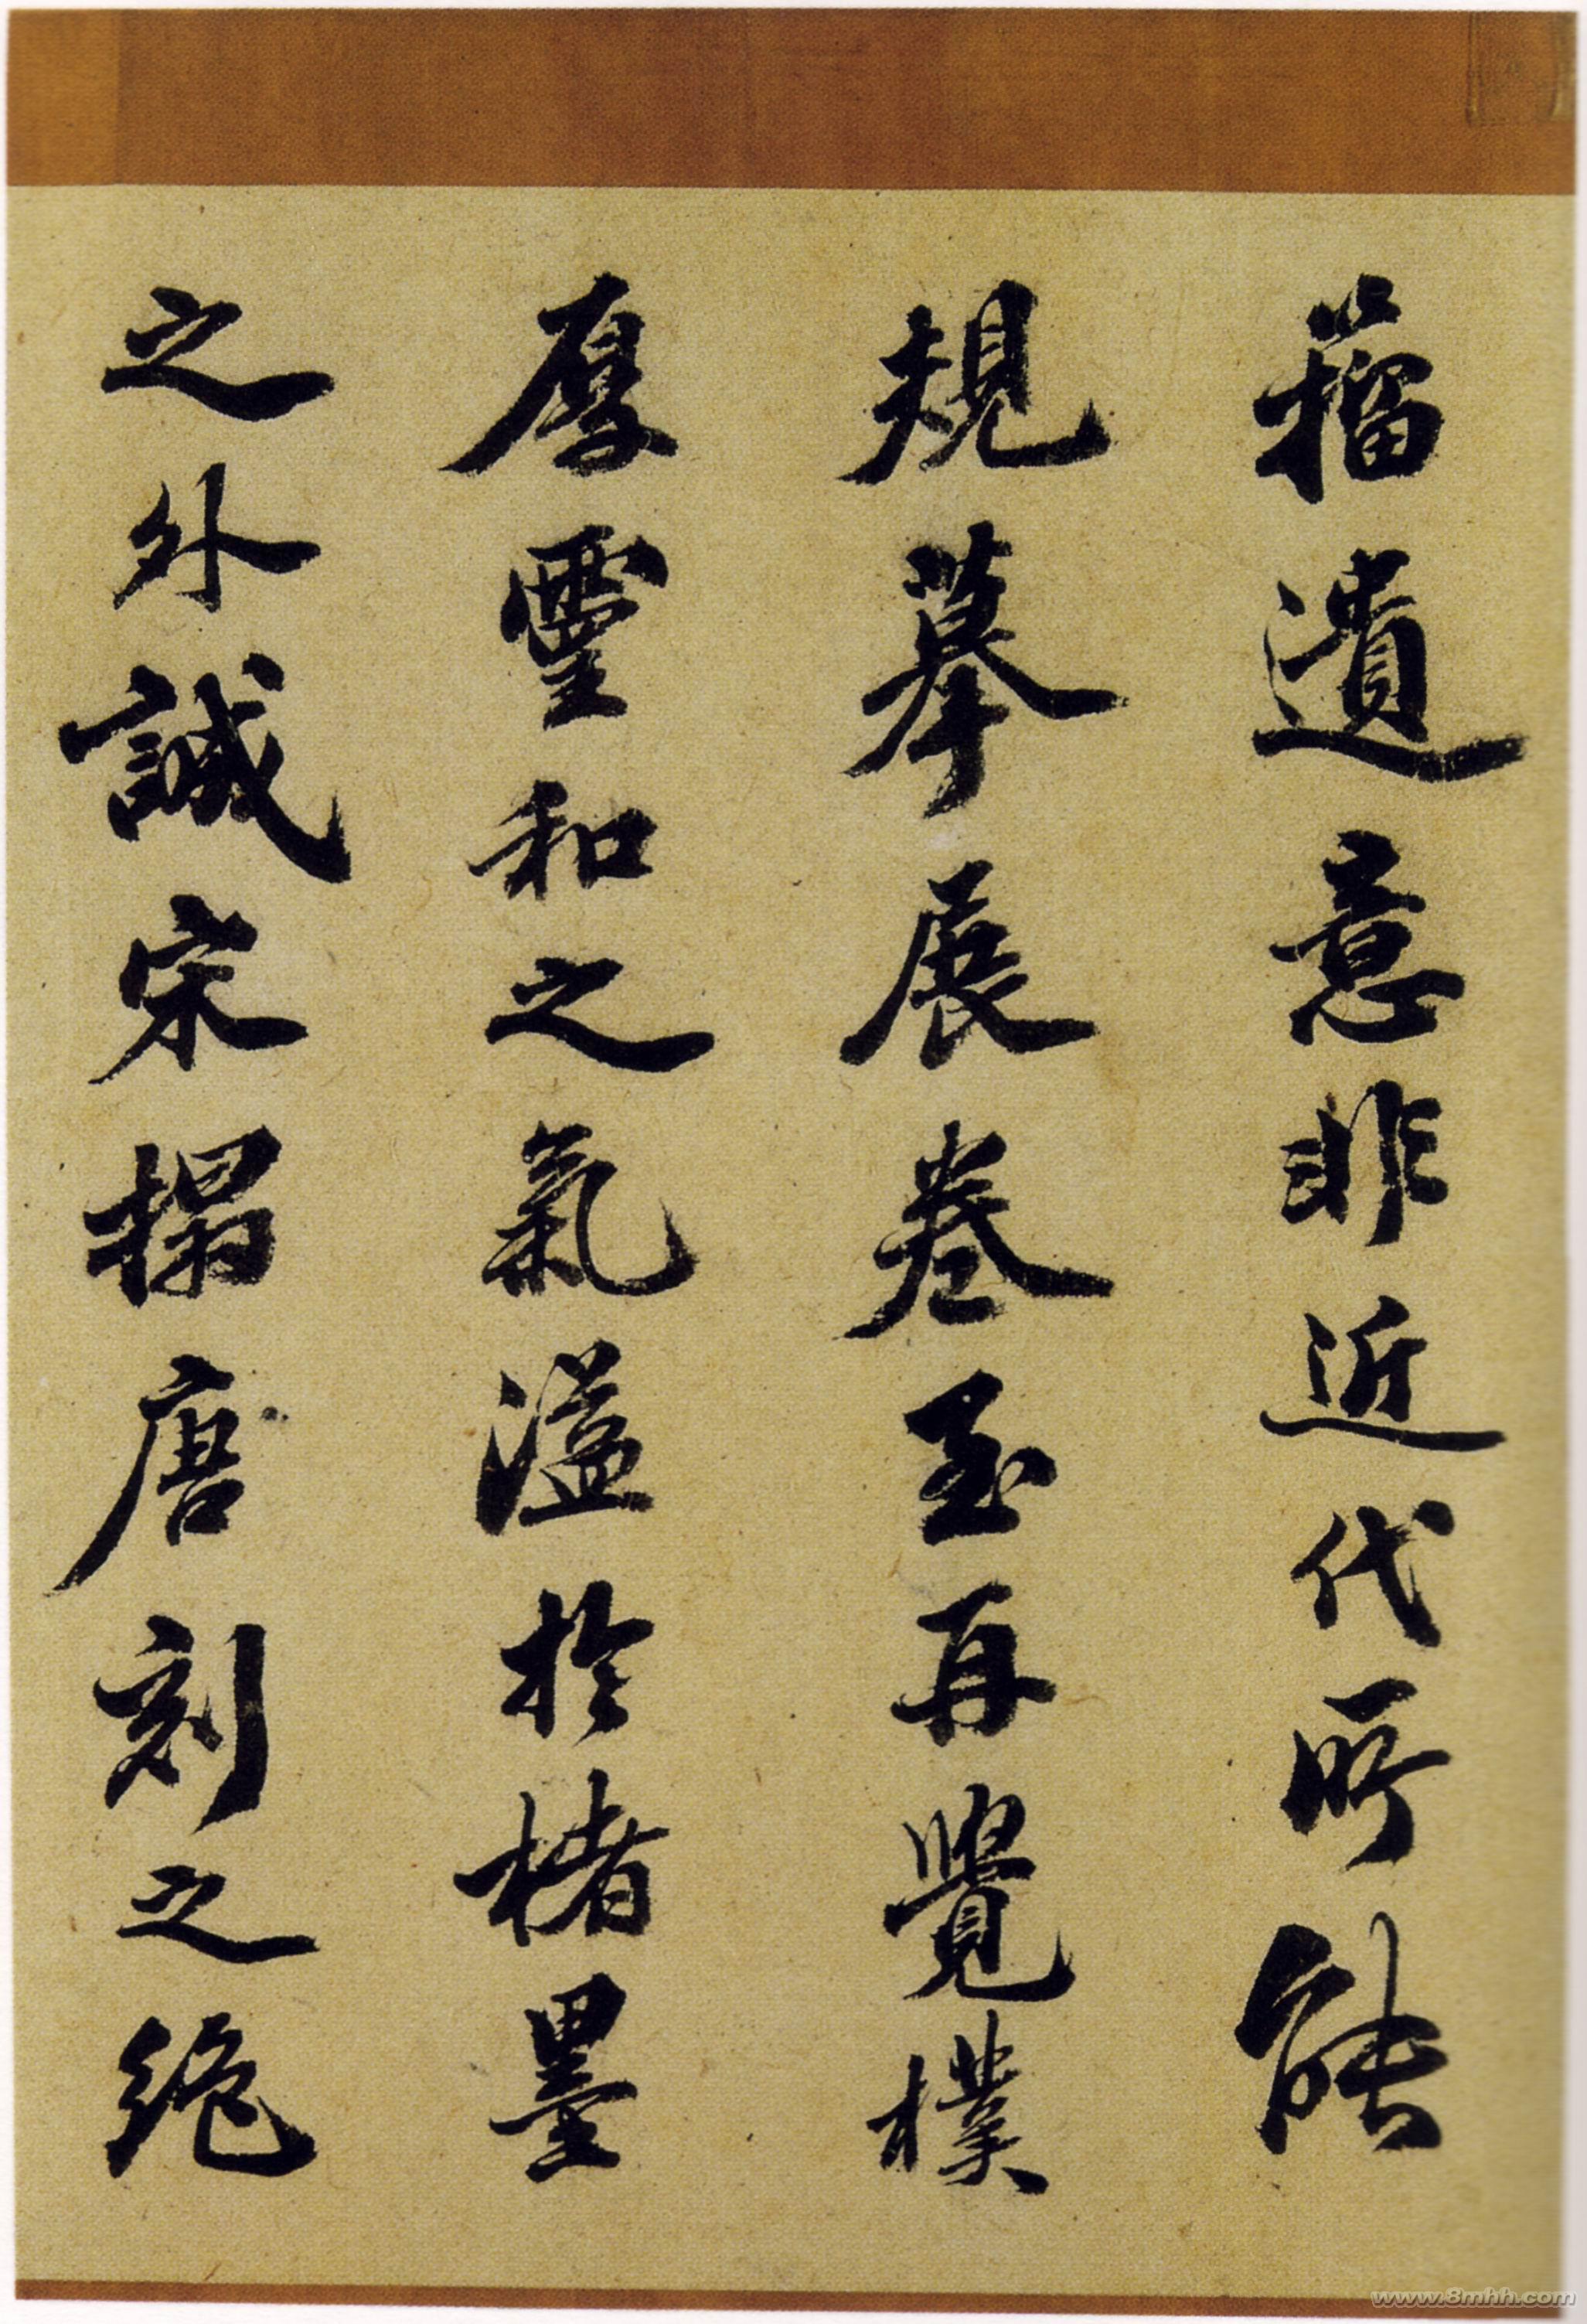 籀遺意非近代所能
規摹展卷至再覺樸
厚靈和之氣溢於楮墨
之外誠宋搨唐刻之絶
www.8mhh.com